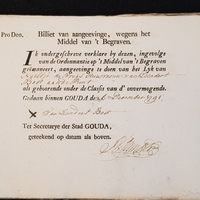 Pro Deo.
Billiet van aangeevinge, wegens het
Middel van 't Begraven.
Ik ondergeschreve verklare by dezen, ingevolge
van de Ordonnantie op 't Middel van 't Begraven
geëmaneert, aangevinge te doen van het Lyk van
Best
als gehoorende onder de Classis van d' onvermogende.
Gedaan binnen GOUDA de December 1791.
Best
Ter Secretarye der Stad GOUDA,
geteekend op datum als boven.